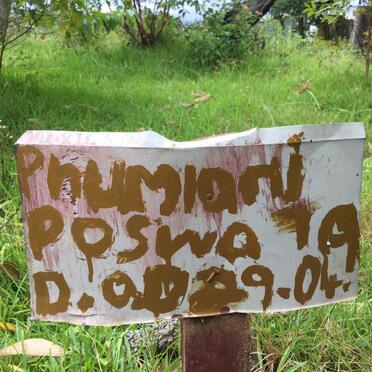 Phumlani
Poswa
D.O.D 29.04.